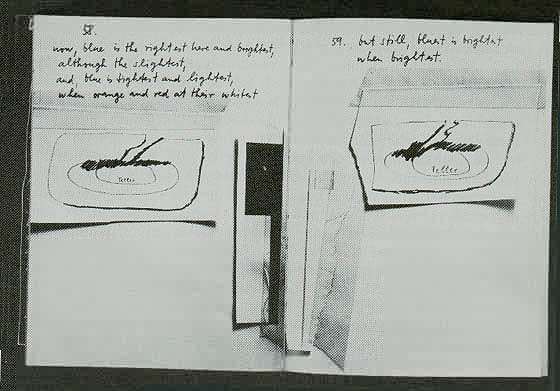 58.
now, blue is the rightest here and brightest,
although the slightest,
and, blue is tightest and lightest,
when orange and red at their whitest
Teller
59. but still, bluest is brightest
when brightest.
Teller